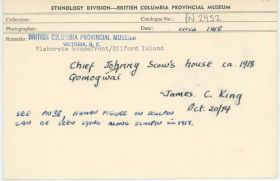 ETHNOLOGY DIVISION—BRITISH COLUMBIA PROVINCIAL MUSEUM
Collection Catalogue No.: PN 2452
Photographer: Date: circa 1918
Remarks: BRITISH COLUMBIA PROVINCIAL MUSEUM
VICTORIA, B. C.
Elaborate housefront/Gilford Island
Chief Johnny Scow's house ca. 1918
Qomogwai
-James C. King
Oct. 20/74
SEE PN 38, HUMAN FIGURE ON SCULPIN
CAN BE SEEN LYING ALONG SCULPIN IN 1917.